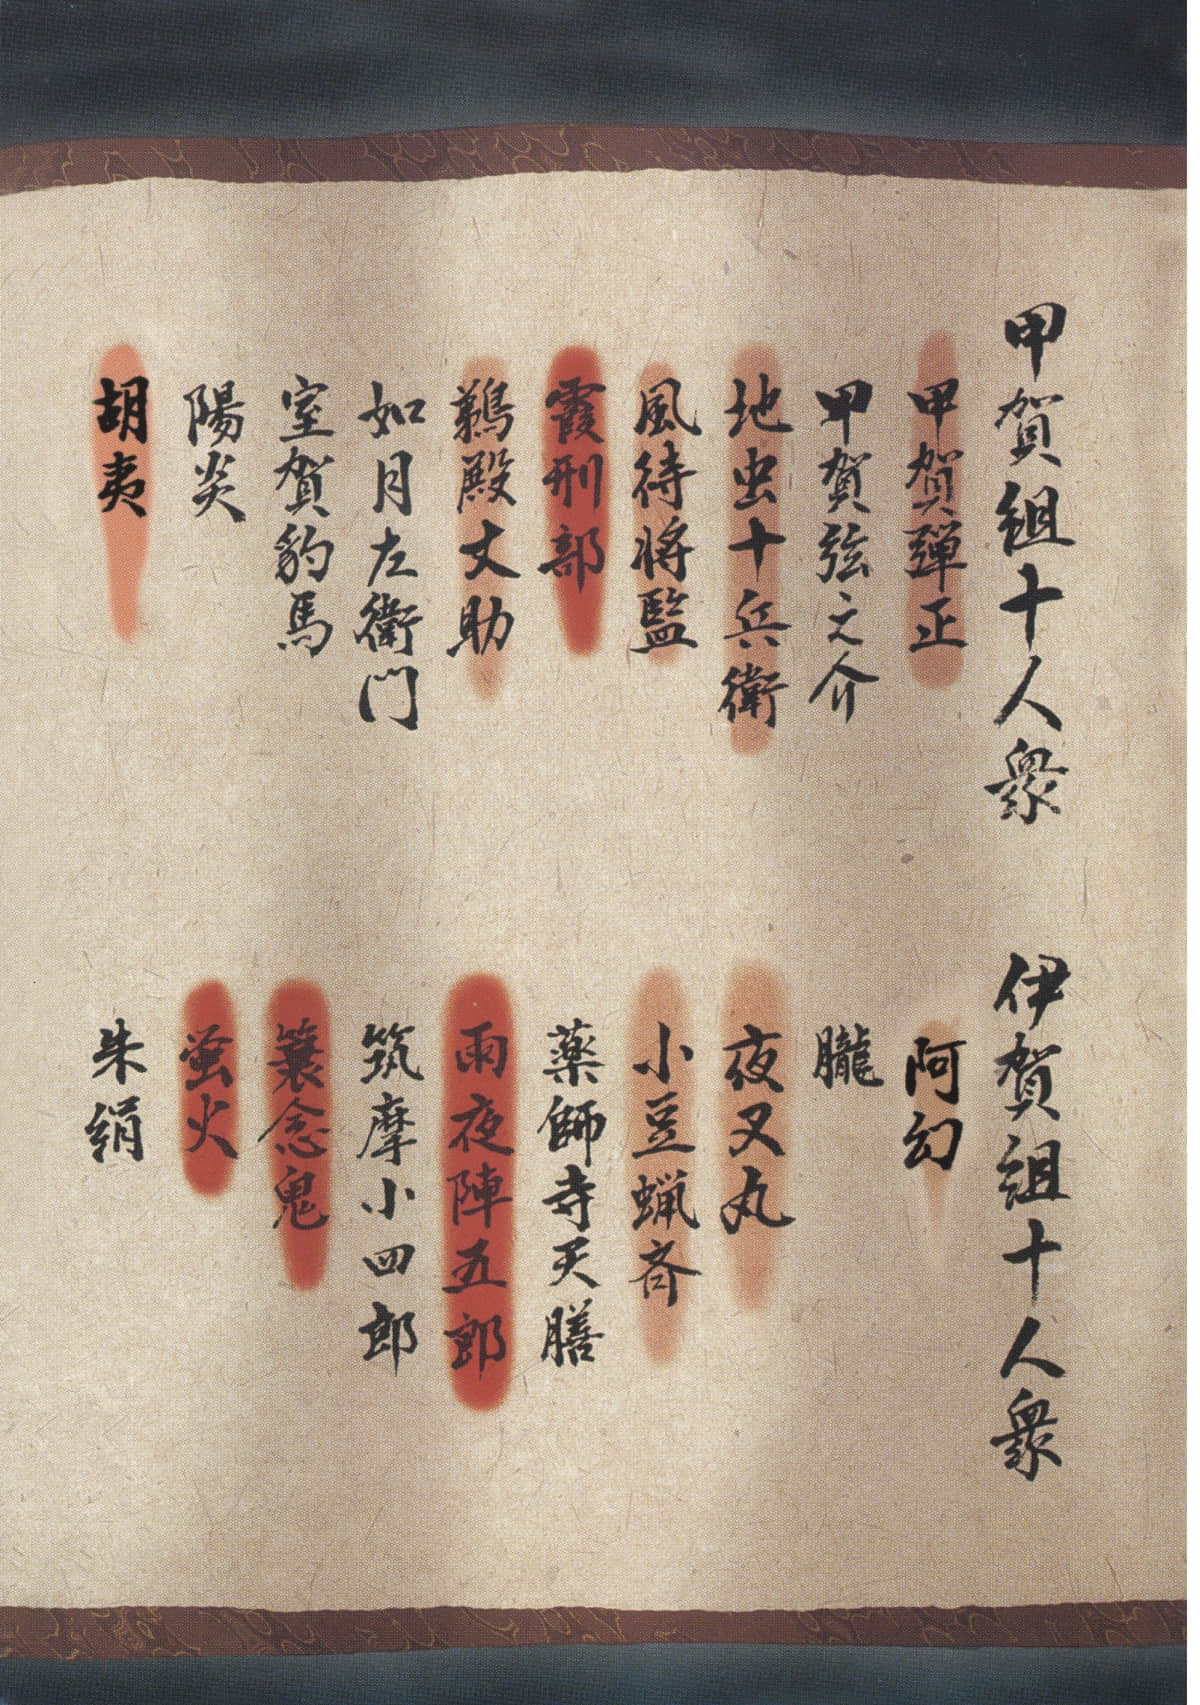 甲賀組十人衆
甲賀彈正
甲賀弦之介
地虫十兵衛
風待将監
霞刑部
鵜殿丈助
如月左衛門
室賀豹馬
陽炎
胡夷
伊賀組十人衆
阿幻
朧
夜叉丸
小豆蝋斎
薬師寺天膳
雨夜陣五郎
筑摩小四郎
簑念鬼
蛍火
朱絹